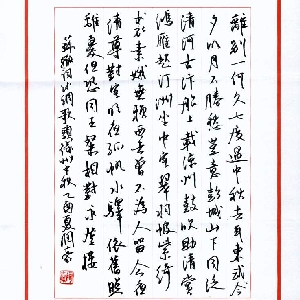 離別一何久七度過中秋去年東武今
夕明月不勝愁豈意彭城山下同泛
清河古汴船上載涼州鼓吹助清賞
鴻雁起汀洲坐中客翠羽帔紫綺
裘素娥無賴西去曾不為人留今夜
清尊對客明夜孤帆水驛依舊照
離憂但恐同王粲相對永登樓
蘇轍詞水調歌頭徐州中秋乙酉夏